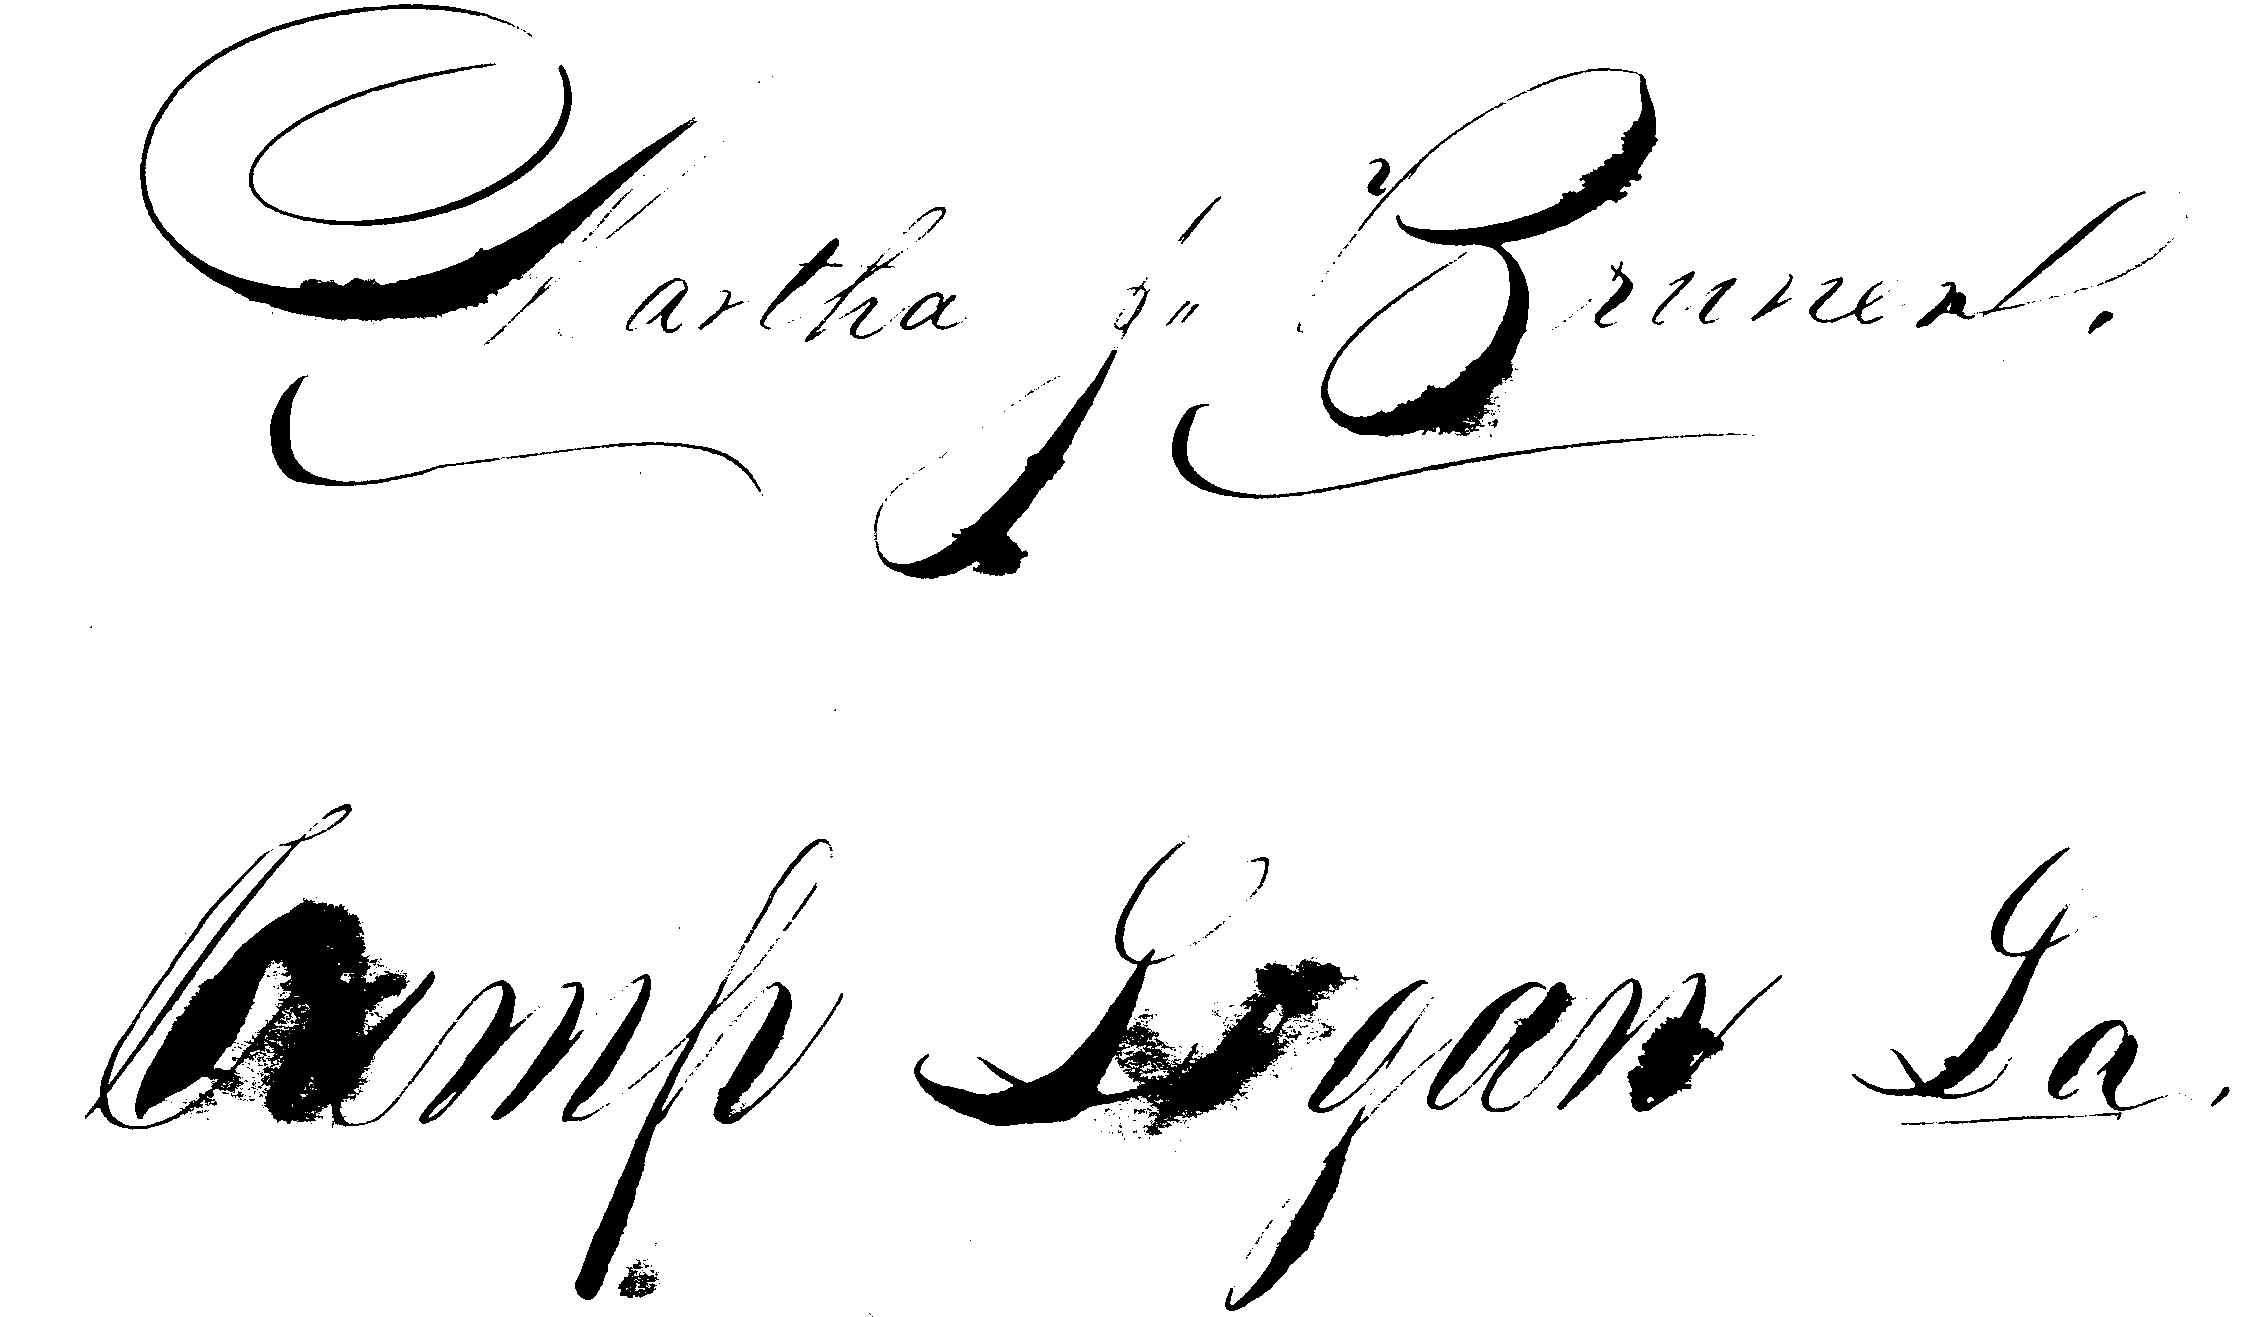 Martha J. Bruner.
Camp Logan Ga.